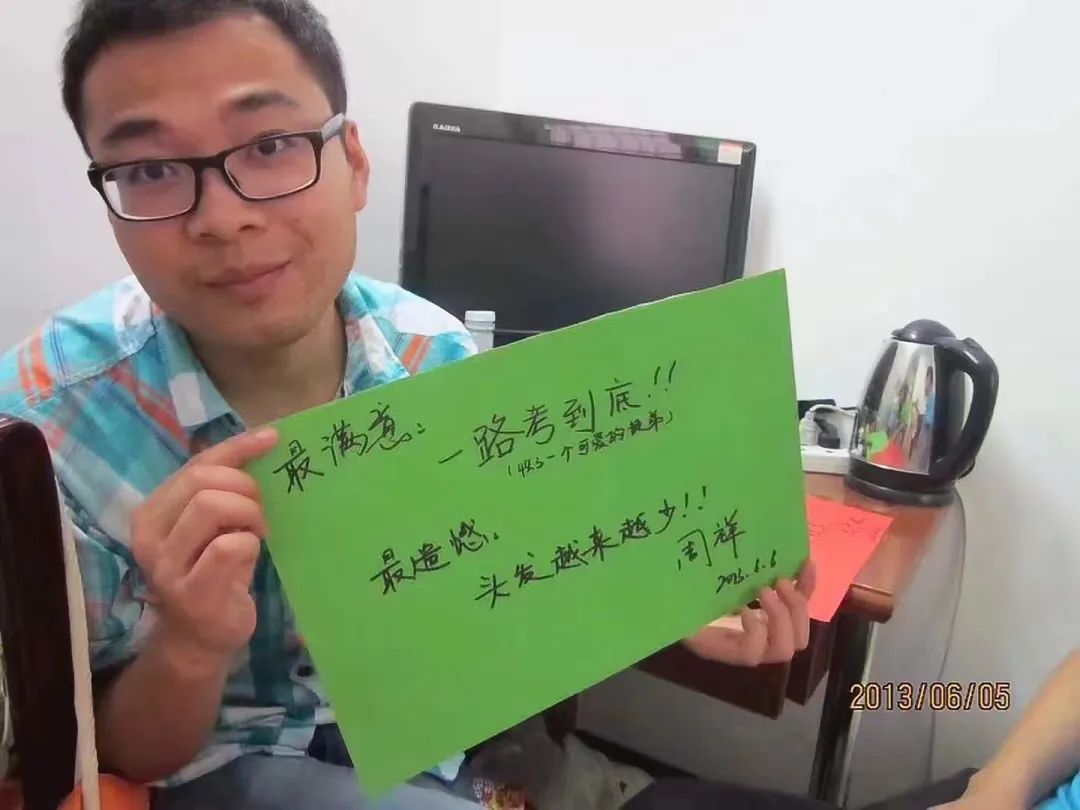 最满意：一路考到底！！
（收了一个可爱的徒弟）
最遗憾：
头发越来越少！！
周祥
2013.6.6
2013/06/05